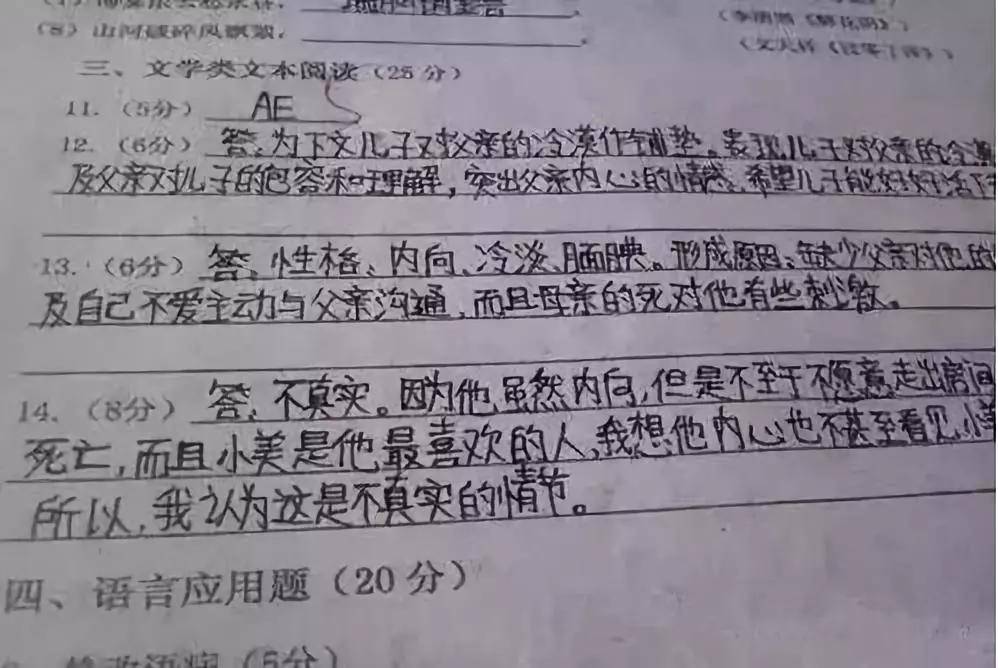 (8) 山河破碎风飘絮，
三、文学类文本阅读（25分）
11.（5分） AE
12.（6分） 答：为下文儿子对父亲的冷漠作铺垫。表现儿子对父亲的冷漠
及父亲对儿子的包容和理解，突出父亲内心的情感。希望儿子能好好活下
13.（6分） 答：性格：内向、冷淡、腼腆。形成原因：缺少父亲对他的
及自己不爱主动与父亲沟通，而且母亲的死对他有些刺激。
14.（8分） 答：不真实。因为他虽然内向，但是不至于不愿意走出房间
死亡，而且小美是他最喜欢的人，我想他内心也不甚至看见小美
所以，我认为这是不真实的情节。
四、语言应用题（20分）
修改语病（5分）